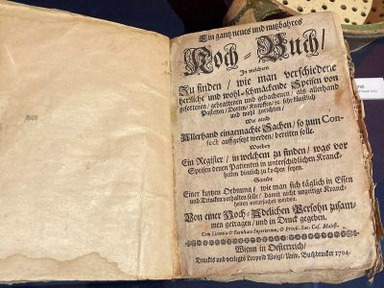 Ein ganz neues und nutzbahres
Koch-Buch/
In welchem
Zu finden / wie man verschiedene
herrliche und wohl-schmäckende Speisen von
gesottenen / gebrattenen und gebachenen / als allerhand
Pasteten / Dorten / Krapffen / ic. sehr künstlich
und wohl zurichten:
Wie auch
Allerhand eingemachte Sachen / so zum Con-
fect auffgesetzt werden / bereiten solle.
Worbey
Ein Register / in welchem zu finden / was vor
Speisen denen Patienten in unterschiedlichen Kranck-
heiten dienlich zu kochen seyen.
Sambt
Einer kurtzen Ordnung / wie man sich täglich in Essen
und Trincken verhalten solle / damit nicht unzeitige Kranck-
heiten verursachet werden.
Von einer Hoch-Adelichen Persohn zusam-
men getragen / und in Druck gegeben.
Cum Licentia & Facultate Superiorum, & Privil. Sac. Cæs. Majest.
Wienn in Oesterreich /
Druckts und verlegts Leopold Voigt / Univ. Buchdrucker 1704.